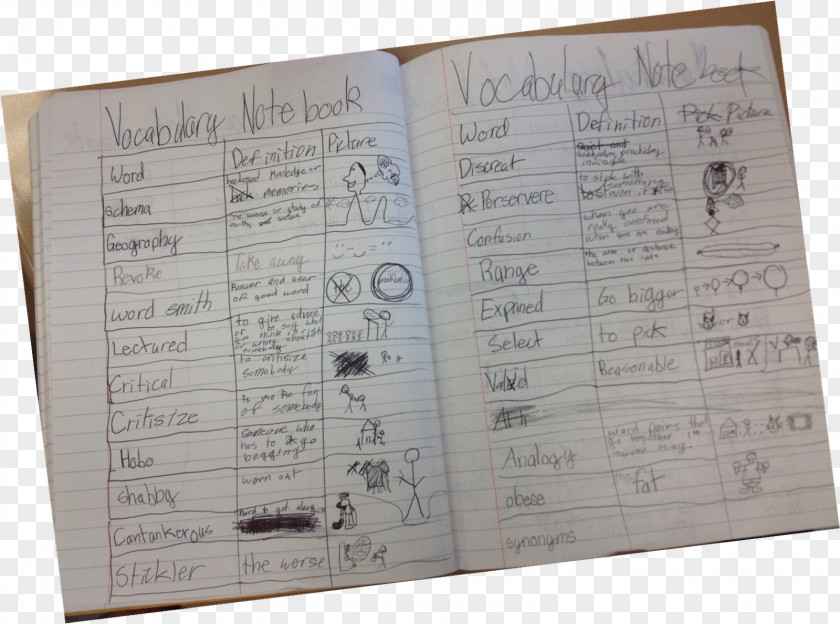 Vocabulary Note book
Word Definition Picture
Schema background knowledge or memories
Geography the science or study of earths surface
Revoke Take away
word smith Knower and user of good word
Lectured to give advice or to say what you think is r or wrong about
Critical to critisize somebody
Critisize is make fun of somebody
Hobo someone who has to go begging
shabby worn out
Cantankorous hard to get along
Stickler the worse
Vocabulary Note book
Word Definition Pick Picture
Discreat quiet and practicley invisible
Porservere to stick with something even if
Confusion when you are really confused when you are
Range the area or distance between
Expined Go bigger
Select to pick
Valid Reasonable
Analogy word pairs that go together in some way
obese fat
synonyms